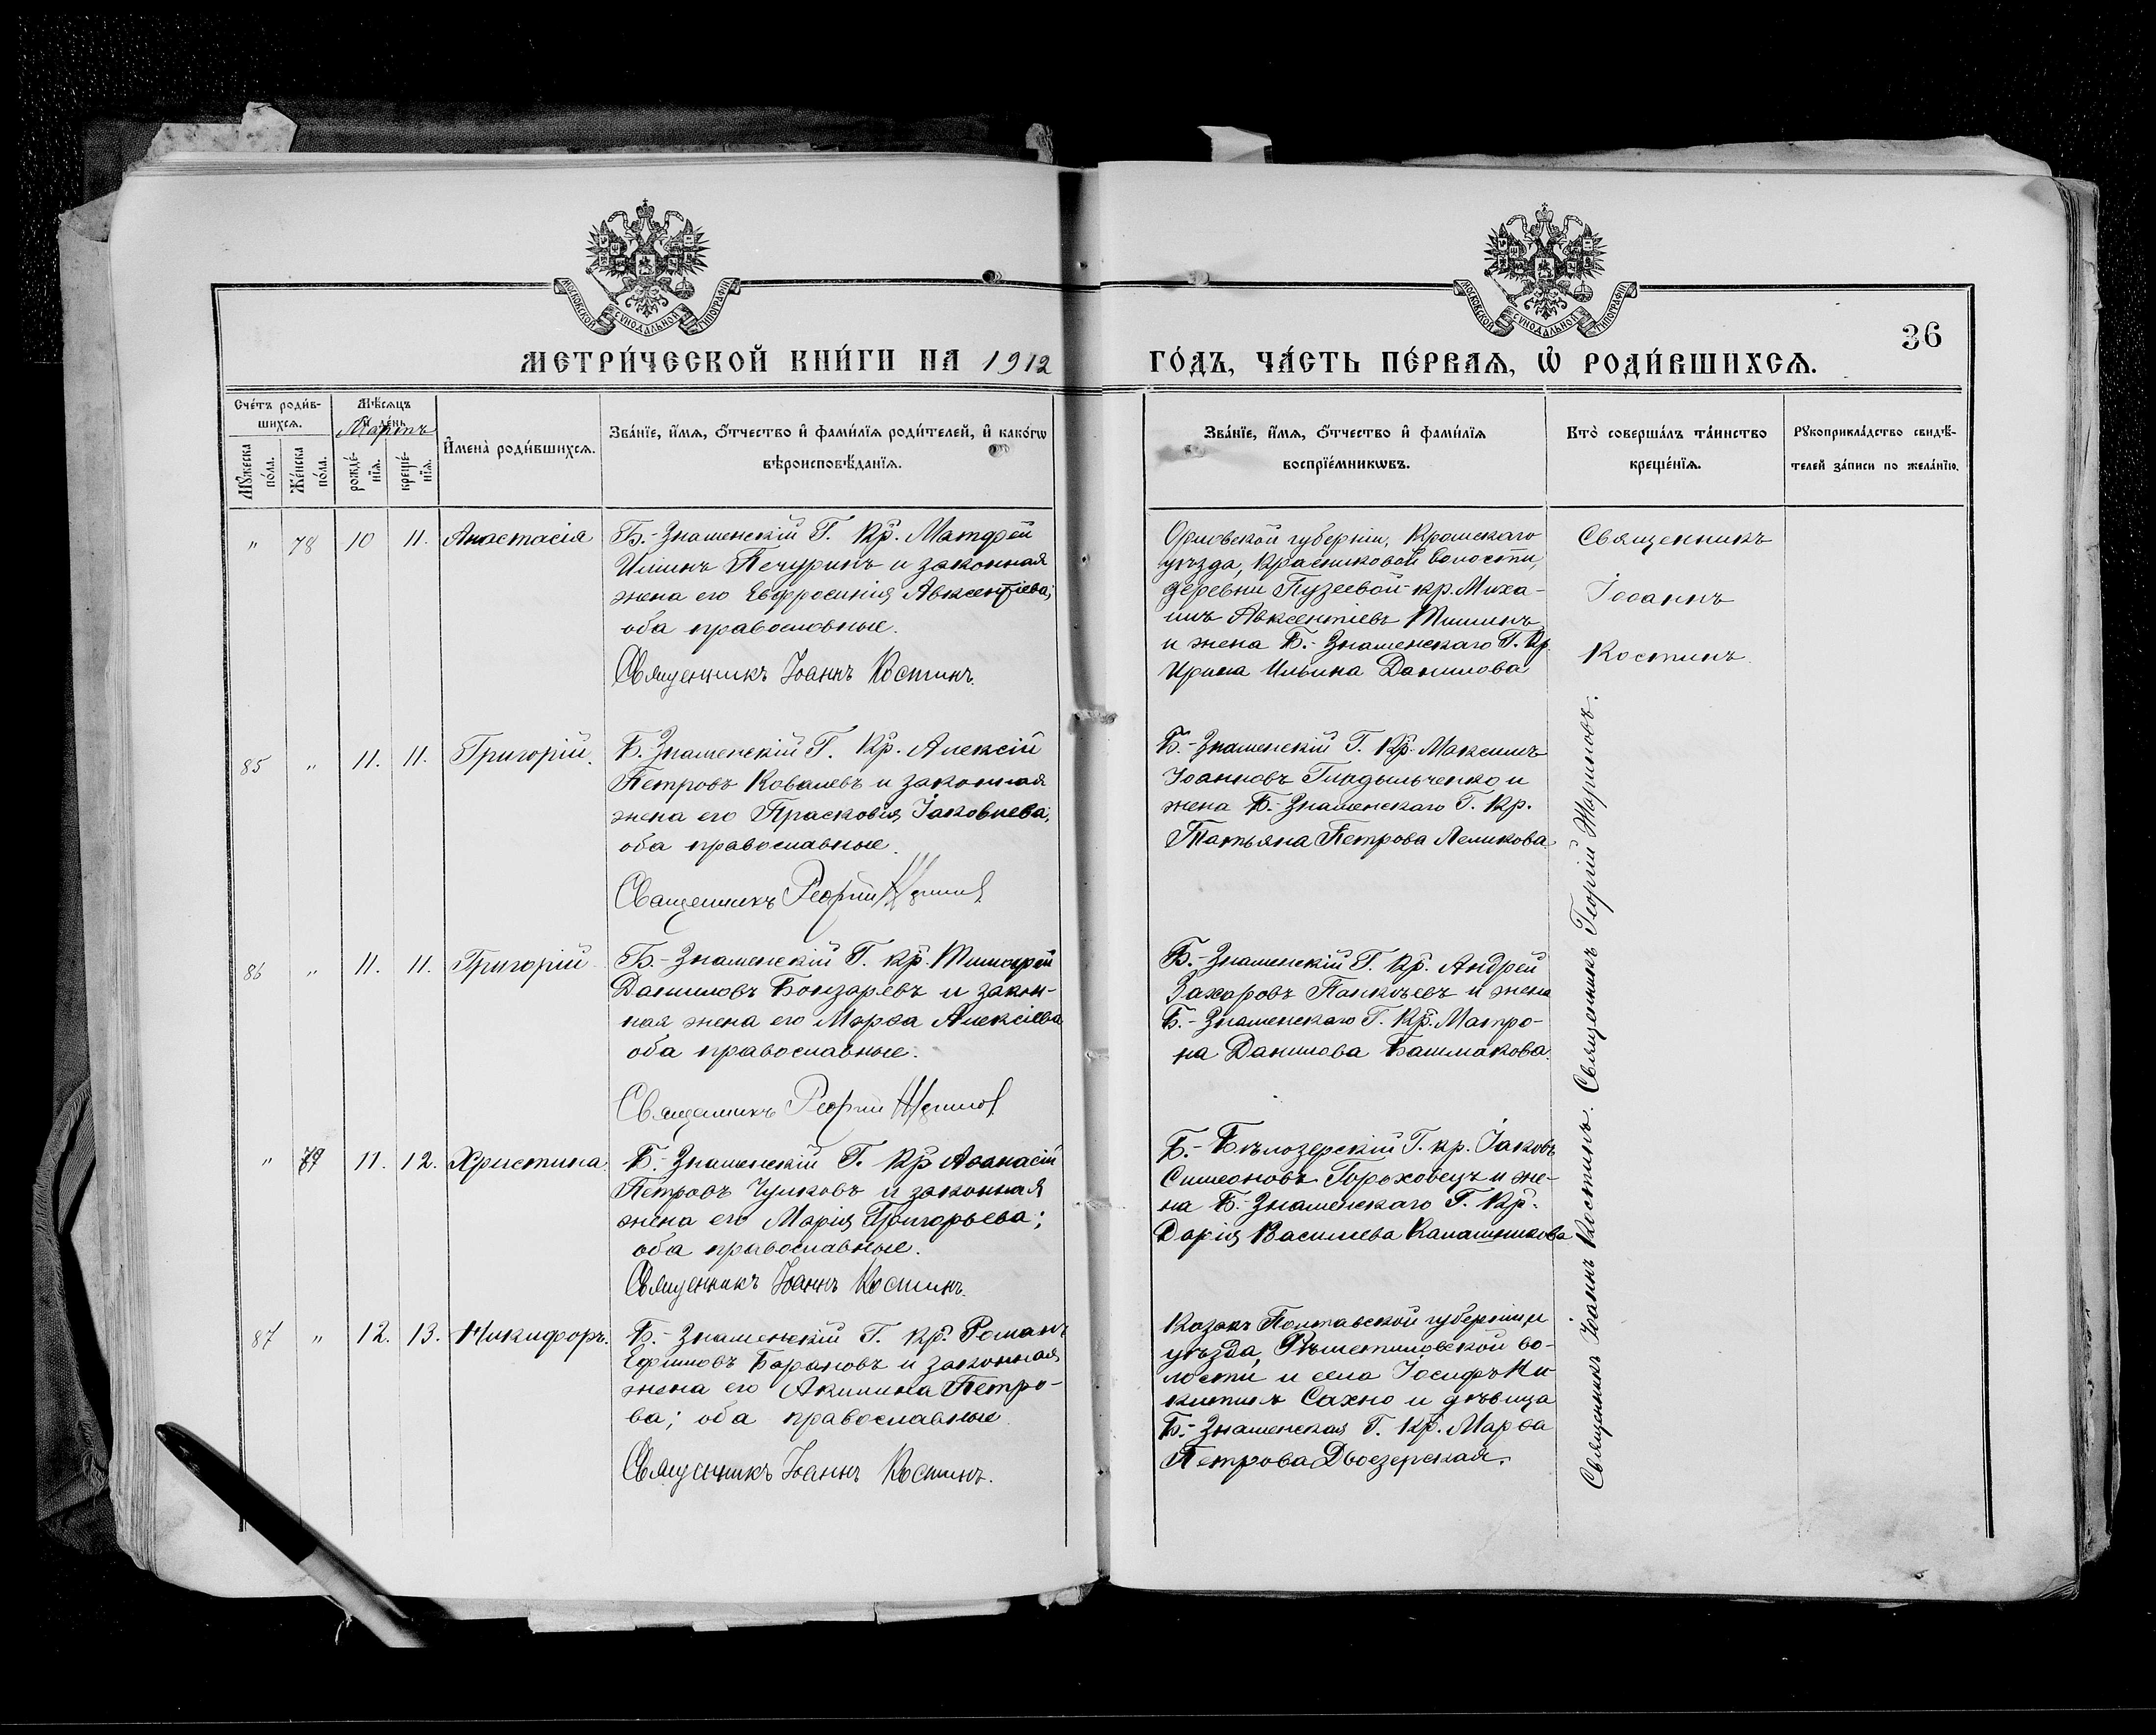 МОСКОВСКОЙ СѴНОДАЛЬНОЙ ТИПОГРАФІИ
МЕТРИ́ЧЕСКОЙ КНИ́ГИ НА 1912
Сче́тъ роди́в-
шихсѧ.
Мꙋ́жеска по́ла.
Же́нска по́ла.
Мѣ́сѧцъ и де́нь
Мартъ
рожде́-
нїѧ.
креще́-
нїѧ.
И҆мена̀ роди́вшихсѧ.
Зва́нїе, и҆́мѧ, ѻ҆́тчество и҆ фами́лїѧ роди́телей, и҆ како́гѡ
вѣроисповѣ́данїѧ.
" 78 10 11. Анастасія
Б.-Знаменскій Г. Кр. Матѳей
Ильинъ Печуринъ и законная
жена его Евфросинія Авксентіева;
оба православные.
Священникъ Іоаннъ Костинъ.
85 " 11. 11. Григорій.
Б. Знаменскій Г. Кр. Алексій
Петровъ Ковалевъ и законная
жена его Прасковія Іаковлева;
оба православные.
Священникъ Георгій
86 " 11. 11. Григорій
Б.-Знаменскій Г. кр. Тимоѳей
Даниловъ Бонзаревъ и закон-
ная жена его Марѳа Алексіева
оба православные.
Священникъ Георгій
" 79 11. 12. Христина.
Б.-Знаменскій Г. Кр. Аѳанасій
Петровъ Чулковъ и законная
жена его Марія Григорьева;
оба православные.
Священникъ Іоаннъ Костинъ.
87 " 12. 13. Никифоръ.
Б.-Знаменскій Г. Кр. Романъ
Ефимовъ Барановъ и законная
жена его Акилина Петро-
ва; оба православные
Священникъ Іоаннъ Костинъ.
МОСКОВСКОЙ СѴНОДАЛЬНОЙ ТИПОГРАФІИ
36
ГО́ДЪ, ЧА́СТЬ ПЕ́РВАѦ, Ѡ҆ РОДИ́ВШИХСѦ.
Зва́нїе, и҆́мѧ, ѻ҆́тчество и҆ фами́лїѧ
воспрїе́мникѡвъ.
Кто̀ соверша́лъ та́инство
креще́нїѧ.
Рꙋкоприкла́дство свидѣ́-
телей за́писи по жела́нїю.
Орловской губерніи, Кромскаго
уѣзда, Красниковой волости,
деревни Пузеевой-кр. Миха-
илъ Авксентіевъ Тишинъ
и жена Б.-Знаменскаго Г. Кр.
Ирина Ильина Данилова
Священникъ
Іоаннъ
Костинъ.
Б.-Знаменскій Г. Кр. Максимъ
Іоанновъ Гиндыльченко и
жена Б.-Знаменскаго Г. Кр.
Татьяна Петрова Лепикова
Б.-Знаменскій Г. Кр. Андрей
Захаровъ Панкѣевъ и жена
Б.-Знаменскаго Г. Кр. Матро-
на Данилова Башмакова.
Б.-Бѣлозерскій Г. кр. Іаковъ
Симеоновъ Гороховецъ и же-
на Б.-Знаменскаго Г. Кр.
Дарія Василіева Калашникова
Козакъ Полтавской губерніи и
уѣзда, Рѣшетиловской во-
лости и села Іосифъ Ни-
китинъ Сахно и дѣвица
Б.-Знаменская Г. Кр. Марѳа
Петрова Двоезерская.
Священникъ Іоаннъ Костинъ. Священникъ Георгій Жариновъ.